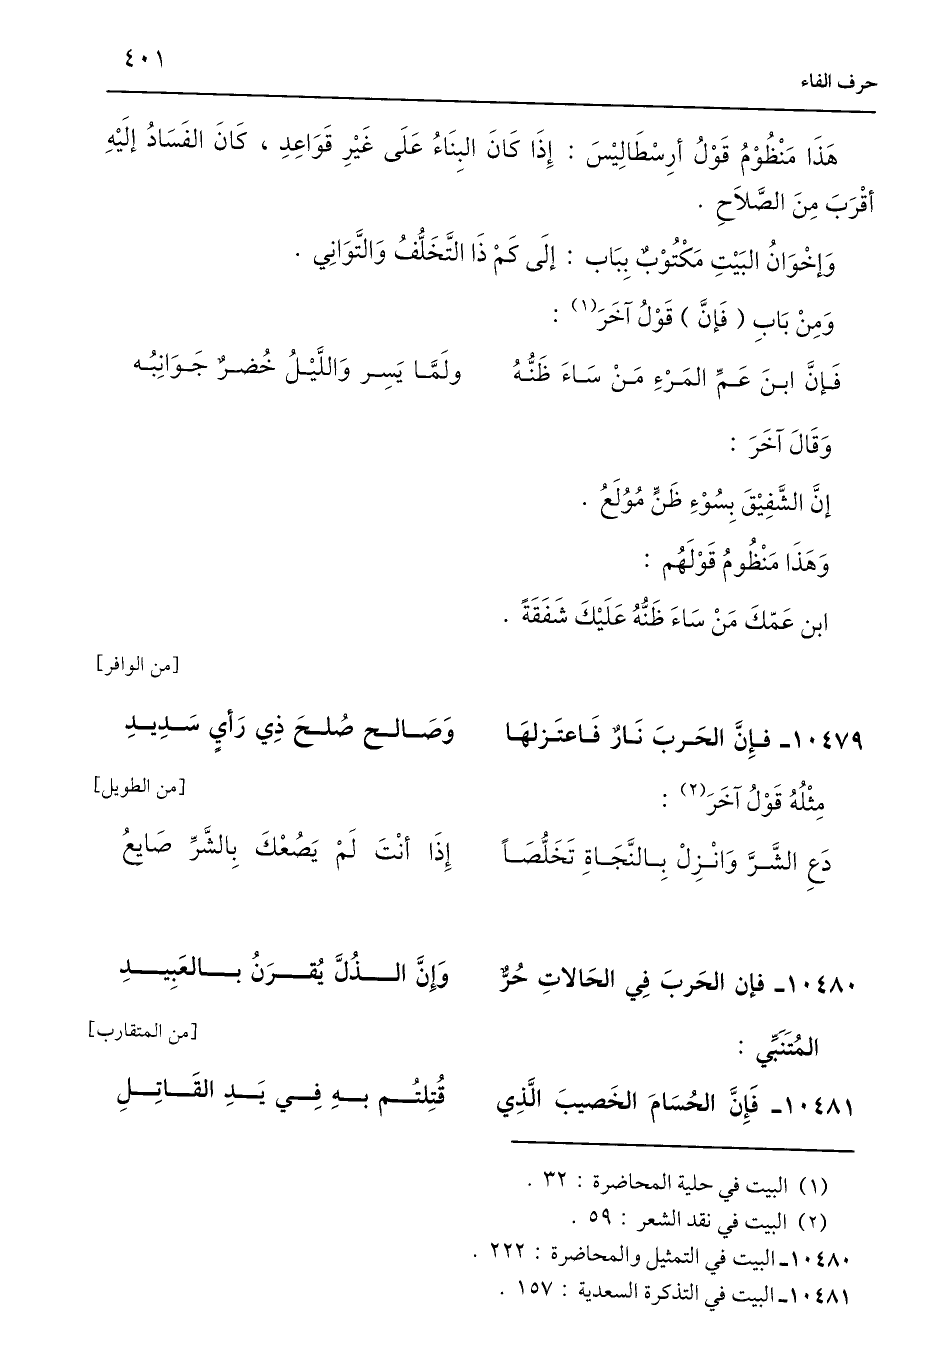 ٤٠١
حرف الفاء
هَذَا مَنْظُوْمُ قَوْلُ أرِسْطَالِيْسَ : إِذَا كَانَ البِنَاءُ عَلَى غَيْرِ قَوَاعِدِ ، كَانَ الفَسَادُ إِلَيْهِ
أقْرَبَ مِنَ الصَّلاَحِ .
وَإخْوَانُ البَيْتِ مَكْتُوْبٌ بِبَاب : إِلَى كَمْ ذَا التَّخَلُّفُ وَالتَّوَانِي .
وَمِنْ بَابِ ( فَإنَّ ) قَوْلُ آخَرَ(١) :
فَإنَّ ابنَ عَمِّ المَرْءِ مَنْ سَاءَ ظَنُّهُ ولَمَّا يَسِر وَاللَّيْلُ خُضرٌ جَوَانِبُه
وَقَالَ آخَرَ :
إنَّ الشَّفِيْقَ بِسُوْءِ ظَنٍّ مُوْلَعُ .
وَهَذَا مَنْظُومُ قَوْلَهُم :
ابن عَمّكَ مَنْ سَاءَ ظَنُّهُ عَلَيْكَ شَفَقَةً .
[من الوافر]
١٠٤٧٩ـ فإِنَّ الحَربَ نَارٌ فَاعتَزلهَا وَصَالح صُلحَ ذِي رَأيٍ سَدِيدِ
مِثْلُهُ قَوْلُ آخَرَ(٢) :
[من الطويل]
دَعِ الشَّرَّ وَانْزِلْ بِالنَّجَاةِ تَخَلُّصَاً إِذَا أنْتَ لَمْ يَصُعْكَ بِالشَّرِّ صَايِعُ
١٠٤٨٠ـ فإن الحَربَ فِي الحَالاتِ حُرٌّ وَإنَّ الذُلَّ يُقرَنُ بالعَبِيدِ
المُتَنَبِّي :
[من المتقارب]
١٠٤٨١ـ فَإِنَّ الحُسَامَ الخَصيبَ الَّذِي قُتِلتُم بهِ فِي يَدِ القَاتِلِ
(١) البيت في حلية المحاضرة : ٣٢ .
(٢) البيت في نقد الشعر : ٥٩ .
١٠٤٨٠ـ البيت في التمثيل والمحاضرة : ٢٢٢ .
١٠٤٨١ـ البيت في التذكرة السعدية : ١٥٧ .